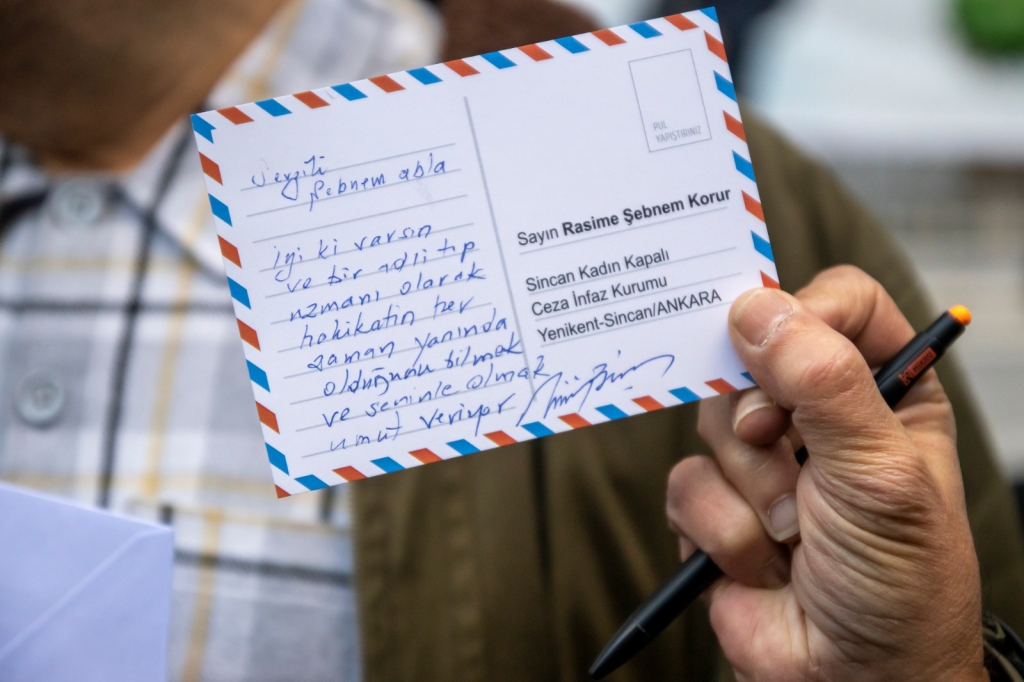 Sevgili
Şebnem abla
iyi ki varsın
ve bir adli tıp
uzmanı olarak
hakikatin her
zaman yanında
olduğunu bilmek
ve seninle olmak
umut veriyor
PUL
YAPIŞTIRINIZ
Sayın Rasime Şebnem Korur
Sincan Kadın Kapalı
Ceza İnfaz Kurumu
Yenikent-Sincan/ANKARA